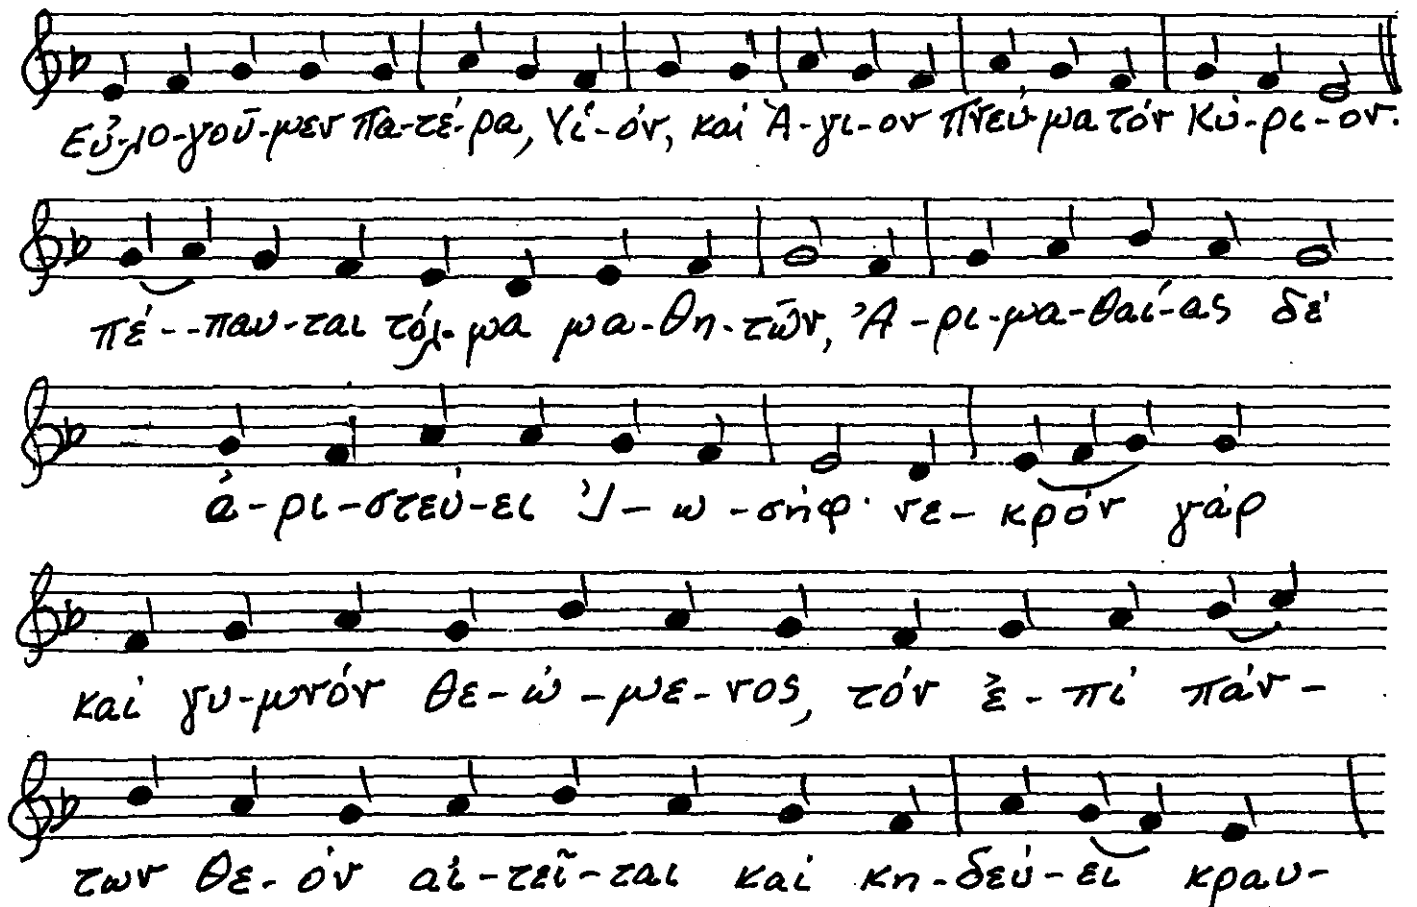 Εὐ-λο-γοῦ-μεν Πα-τέ-ρα, Υἱ-όν, καί Ἅ-γι-ον Πνεύ-μα τόν Κύ-ρι-ον.
πέ--παυ-ται τόλ-μα μα-θη-τῶν, Ἀ-ρι-μα-θαί-ας δέ
ἀ-ρι-στεύ-ει Ἰ-ω-σήφ· νε-κρόν γάρ
καί γυ-μνόν θε-ώ-με-νος, τόν ἐ-πί πάν-
των Θε-όν αἰ-τεῖ-ται καί κη-δεύ-ει κραυ-